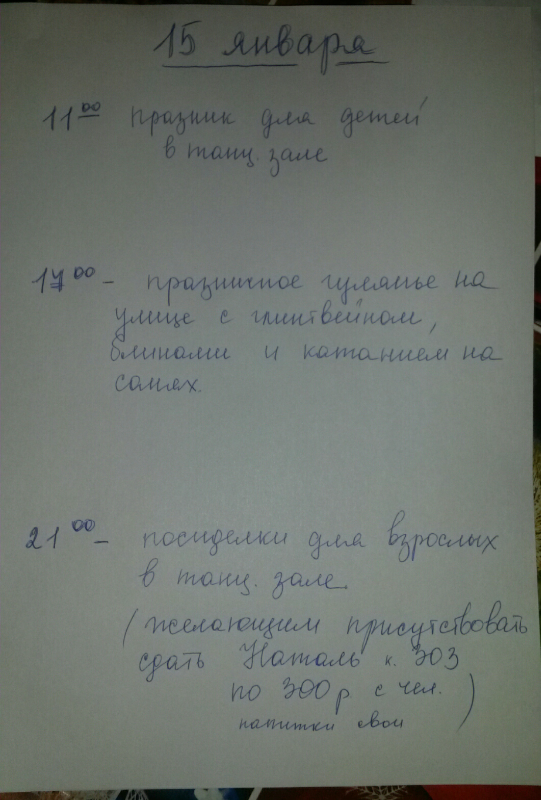 15 января
11 00 празник для детей
в танц. зале
17 00 - празничное гулянье на
улице с глинтвейном,
блинами и катанием на
санях.
21 00 - посиделки для взрослых
в танц. зале.
(желающим присутствовать
сдать Наталь к. 303
по 300 р с чел.)
напитки свои